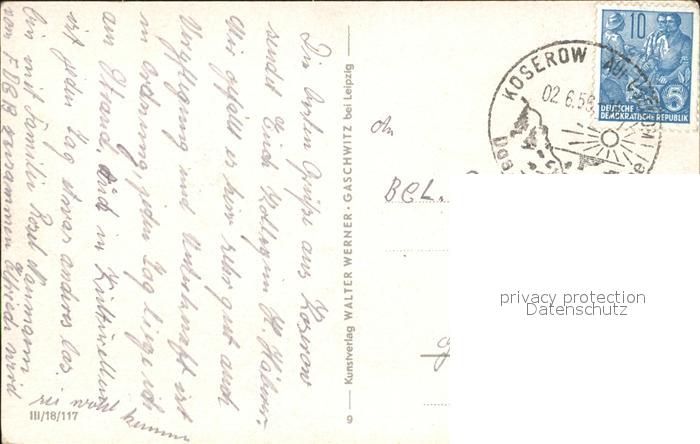 Die besten Grüße aus Koserow
sendet Euch Kollegin H. Häbner.
Mir gefällt es hier sehr gut auch
Verpflegung und Unterkunft ist
in Ordnung, jeden Tag liege ich
am Strand, und in Kulturellen
ist jeden Tag etwas anders los.
bin mit Familie Rosel Naumann
vom F.D.G.B zusammen Elfriede wird
sie wohl kennen
III/18/117
Kunstverlag WALTER WERNER · GASCHWITZ bei Leipzig
9
An
BGL.
KOSEROW AUF USEDOM
02.6.56
10
5
DEUTSCHE
DEMOKRATISCHE REPUBLIK
privacy protection
Datenschutz